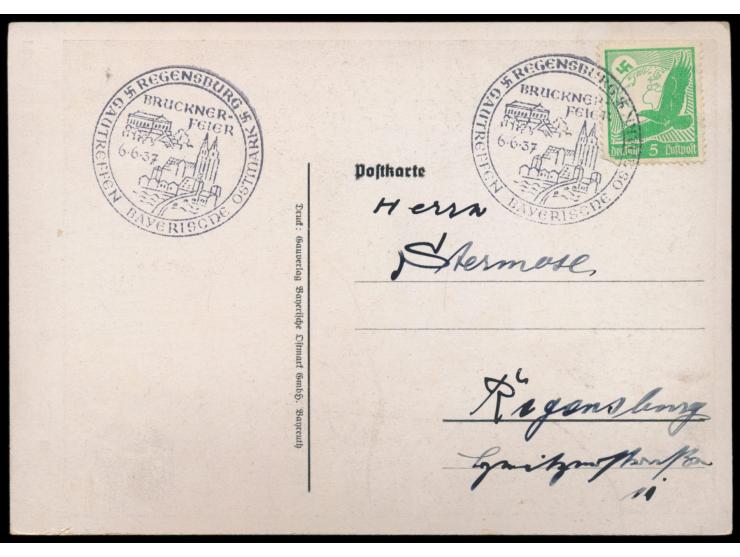 REGENSBURG
GAUTREFFEN BAYERISCHE OSTMARK
BRUCKNER-
FEIER
6·6·37
REGENSBURG
GAUTREFFEN BAYERISCHE OS
BRUCKNER-
FEIER
6·6·37
Deutsche 5 Luftpost
Postkarte
Herrn
Stermose
Regensburg
Druck: Gauverlag Bayerische Ostmark GmbH. Bayreuth